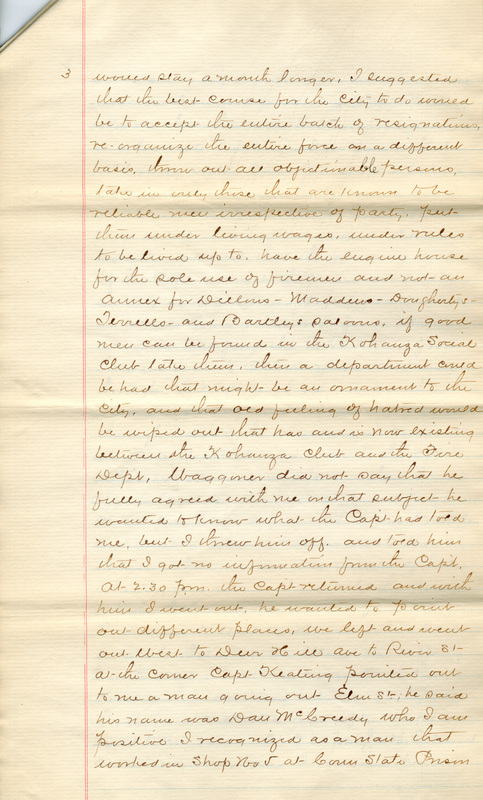 3 would stay a month longer, I suggested
that the best course for the City to do would
be to accept the entire batch of resignations,
re-organize the entire force on a different
basis, throw out all objectionable persons,
take in only those that are known to be
reliable men irrespective of party, put
them under living wages, under rules
to be lived up to, have the engine house
for the sole use of firemen and not an
annex for Dillons - Maddens - Doughertys -
Ferrells - and Bartleys saloons, if good
men can be found in the Kohanza Social
Club take them, then a department could
be had that might be an ornament to the
City, and that old feeling of hatred would
be wiped out that has and is now existing
between the Kohanza Club and the Fire
Dept, Waggoner did not say that he
fully agreed with me on that subject he
wanted to know what the Capt had told
me, but I threw him off, and told him
that I got no information from the Capt,
at 2.30 pm. the Capt returned and with
him I went out, he wanted to point
out different places, we left and went
out West to Deer Hill ave to River St -
at the corner Capt Keating pointed out
to me a man going out Elm St, he said
his name was Dan McCreedy who I am
positive I recognized as a man that
worked in Shop No 5 at Conn State Prison